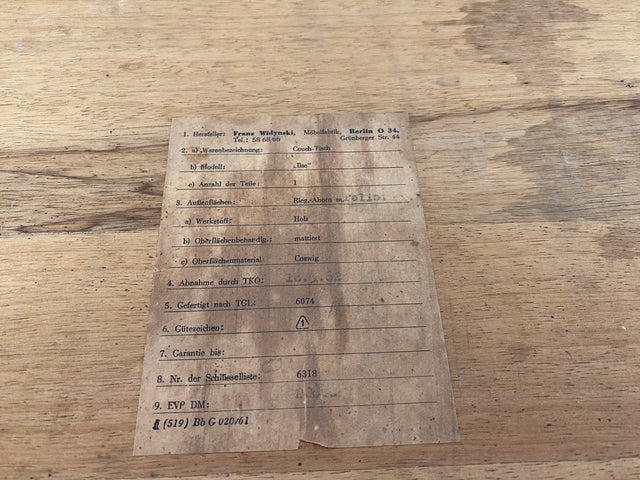 1. Hersteller: Franz Widynski, Möbelfabrik, Berlin O 34,
Tel.: 58 68 60 Grünberger Str. 44
2. a) Warenbezeichnung: Couch-Tisch
b) Modell: „Ilse"
c) Anzahl der Teile: 1
3. Außenflächen: Rieg.-Ahorn m.
a) Werkstoff: Holz
b) Oberflächenbehandlg.: mattiert
c) Oberflächenmaterial Coswig
4. Abnahme durch TKO:
5. Gefertigt nach TGL: 6074
6. Gütezeichen: 1
7. Garantie bis:
8. Nr. der Schlüsselliste: 6318
9. EVP DM:
(519) Bb G 020/61